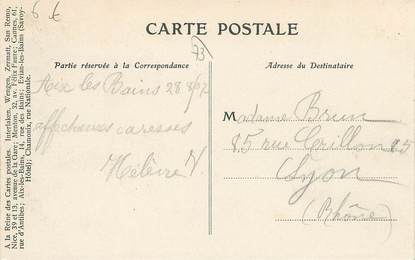 6 €
CARTE POSTALE
73
Partie réservée à la Correspondance
Adresse du Destinataire
A la Reine des Cartes postales. Interlaken, Wengen, Zermatt, San Remo,
Nice, 39 et 13, avenue de la Gare; Menton, 32, av. Félix Faure; Cannes, 61,
rue d'Antibes; Aix-les-Bains, 14, rue des Bains; Evian-les-Bains (Savoy-
Hôtel); Chamonix, rue Nationale.
Aix les Bains 28
affectueuses caresses
Madame Brun
85 rue Crillon 85
Lyon
(Rhône)